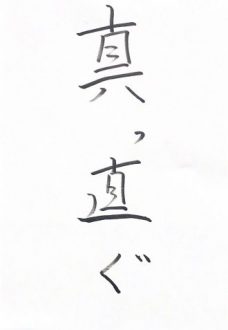 真っ直ぐ